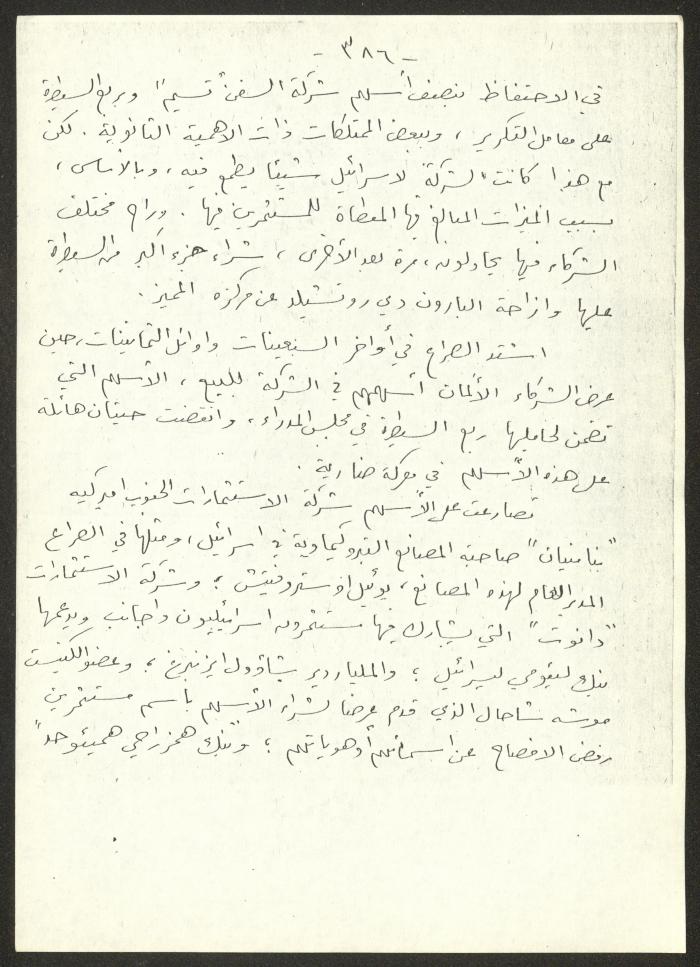 - ٣٨٦ -
في الاحتفاظ بنصف أسهم شركة السفن "تسيم" وبربع السيطرة
على معامل التكرير، وببعض الممتلكات ذات الاهمية الثانوية. لكن
مع هذا كانت الشركة لاسرائيل شيئا يطمع فيه، وبالأساس،
بسبب الميزات المبالغ فيها المعطاة للمستثمرين فيها. وراح مختلف
الشركاء فيها يحاولون، مرة بعد الأخرى، شراء جزء أكبر من السيطرة
عليها وازاحة البارون دي روتشيلد عن مركزه المميز.
اشتد الصراع في أواخر السبعينات واوائل الثمانينات، حين
عرض الشركاء الألمان أسهمهم في الشركة للبيع، الأسهم التي
تضمن لحامليها ربع السيطرة في مجلس المدراء، وانقضت حيتان هائلة
على هذه الأسهم في معركة ضارية.
تصارعت على الأسهم شركة الاستثمارات الجنوب اميركيه
"بنامنيان" صاحبة المصانع البتروكيماوية في اسرائيل، ومثلها في الصراع
المدير العام لهذه المصانع، يوئيل اوستروفتيش؛ وشركة الاستثمارات
"دانوت" التي يشارك فيها مستثمرون اسرائيليون واجانب ويدعمها
بنك ليئومي ليسرائيل؛ والملياردير شاؤول ايزنبرغ؛ وعضو الكنيست
موشه شاحال الذي قدم عرضا لشراء الأسهم باسم مستثمرين
رفض الافصاح عن اسمائهم أو هوياتهم؛ و"بنك همزراحي همیئوحد"